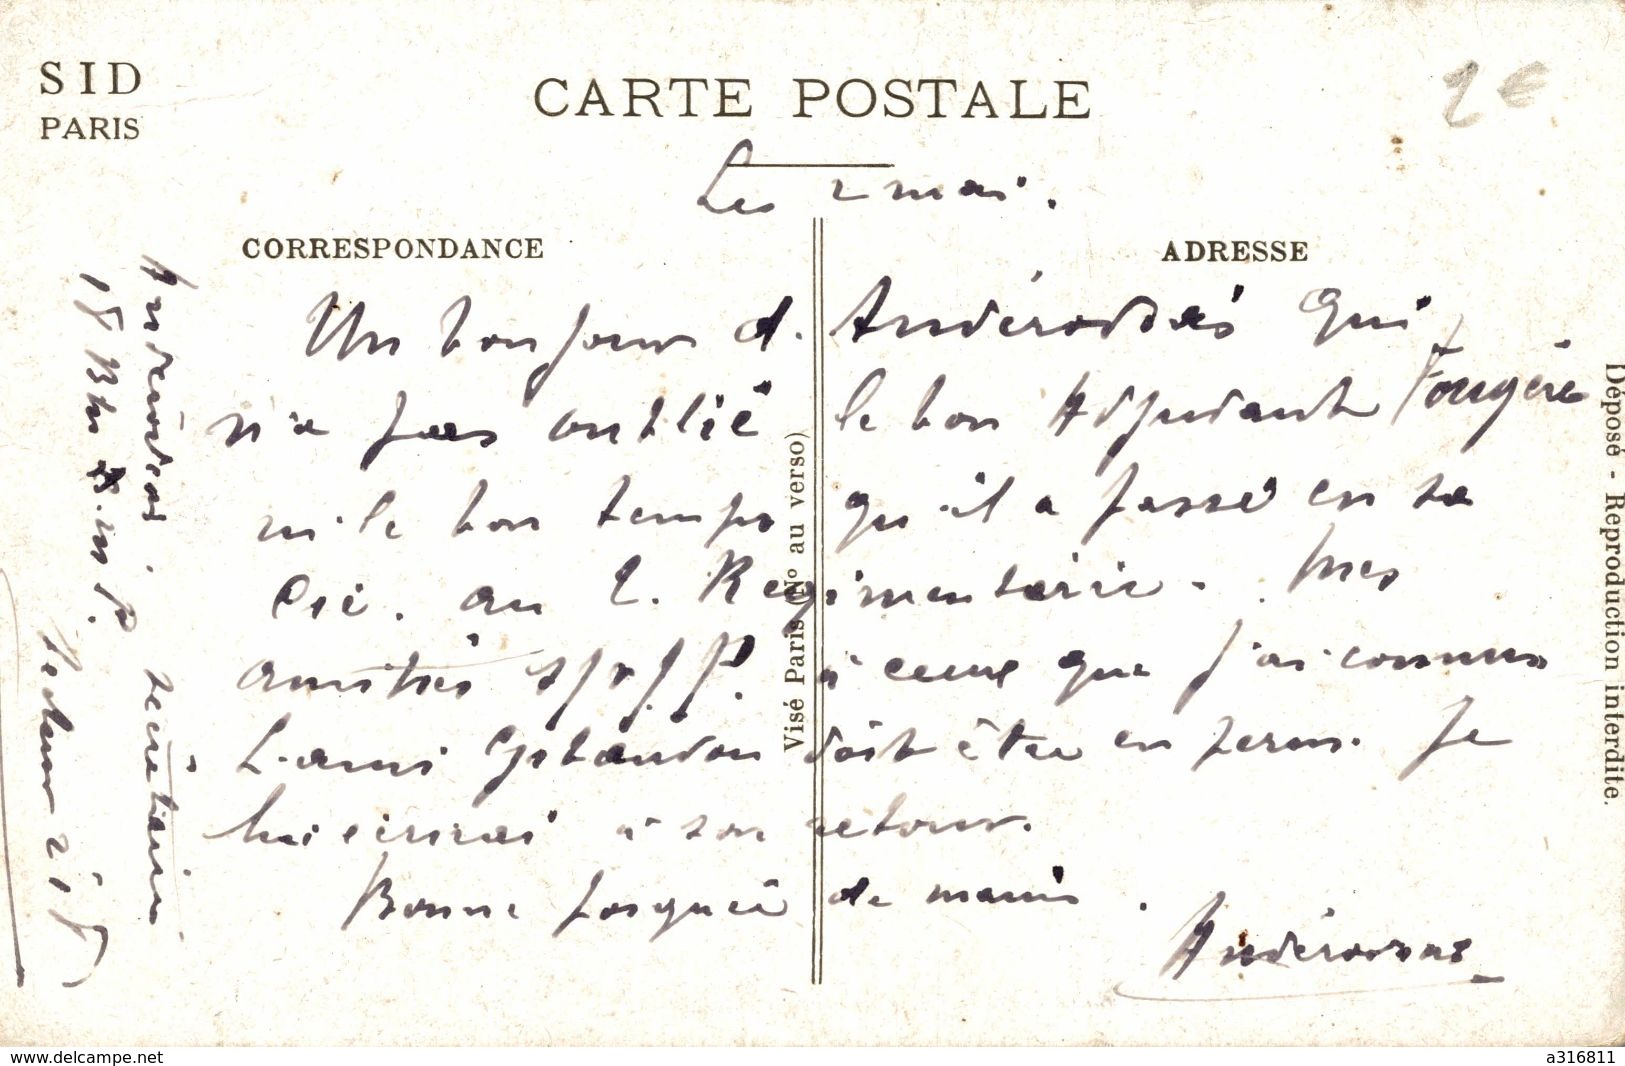 SID
PARIS
CARTE POSTALE
2€
Les 2 mai.
CORRESPONDANCE
ADRESSE
Un bonjour d. Andérodias qui
n'a pas oublié le bon Adjudant Fougère
ni le bon temps qu'il a passé en sa
Cie. au Régimentaire. Mes
amitiés à ceux que j'ai connus
L'ami doit être en perm. Je
lui écrirai à son retour.
Bonne poignée de mains.
Andérodias
Andérodias secrétaire
18
Secteur
Visé Paris (No au verso)
Déposé - Reproduction interdite.
www.delcampe.net
a316811